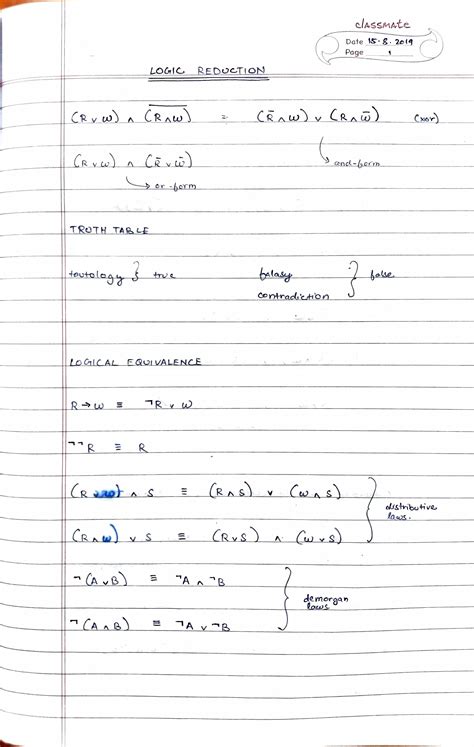 classmate
Date 15-8-2019
Page 1
LOGIC REDUCTION
(R ∨ w) ∧ (R̅ ̅∧̅ ̅w̅) = (R̄ ∧ w) ∨ (R ∧ w̄) (xor)
and-form
(R ∨ w) ∧ (R̄ ∨ w̄)
or-form
TRUTH TABLE
tautology } true falasy } false
contradiction
LOGICAL EQUIVALENCE
R → w ≡ ¬R ∨ w
¬¬R ≡ R
(R ∨ w) ∧ S ≡ (R ∧ S) ∨ (w ∧ S)
distributive
laws.
(R ∧ w) ∨ S ≡ (R ∨ S) ∧ (w ∨ S)
¬(A ∨ B) ≡ ¬A ∧ ¬B
demorgan
laws
¬(A ∧ B) ≡ ¬A ∨ ¬B